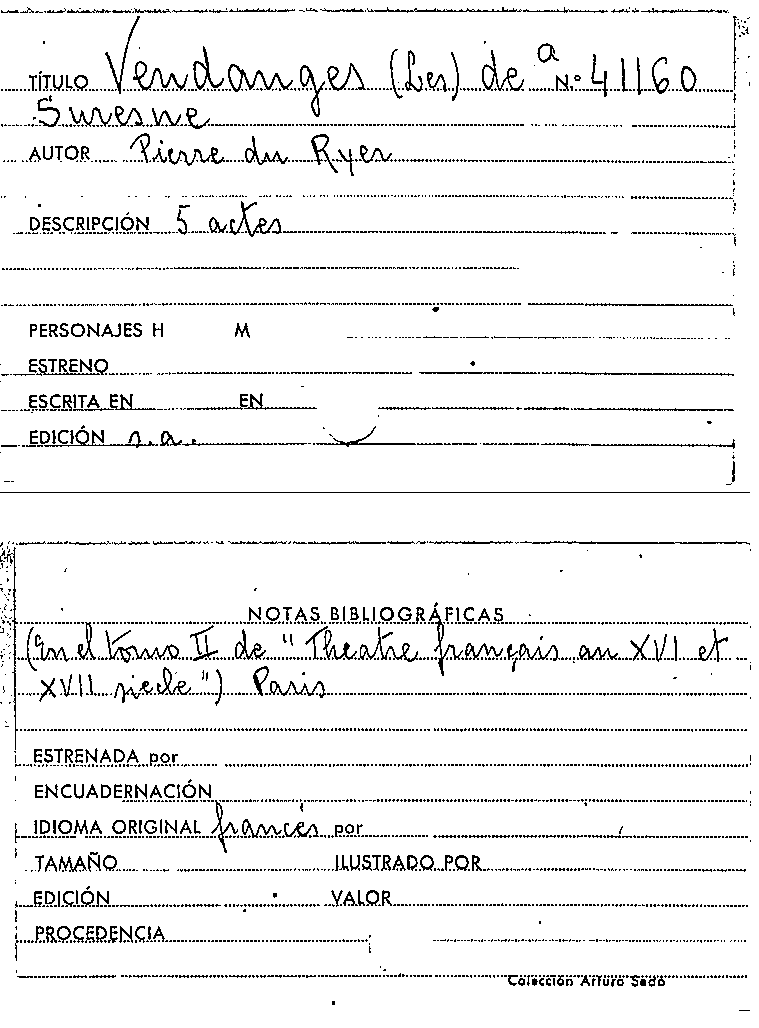 TÍTULO Vendanges (Les) de a N.º 41160
Suresne
AUTOR Pierre du Ryer
DESCRIPCIÓN 5 actes
PERSONAJES H M
ESTRENO
ESCRITA EN EN
EDICIÓN s.a.
NOTAS BIBLIOGRÁFICAS
(En el tomo II de "Theatre français au XVI et
XVII siecle") Paris
ESTRENADA por
ENCUADERNACIÓN
IDIOMA ORIGINAL francés por
TAMAÑO ILUSTRADO POR
EDICIÓN VALOR
PROCEDENCIA
Colección Arturo Sedó